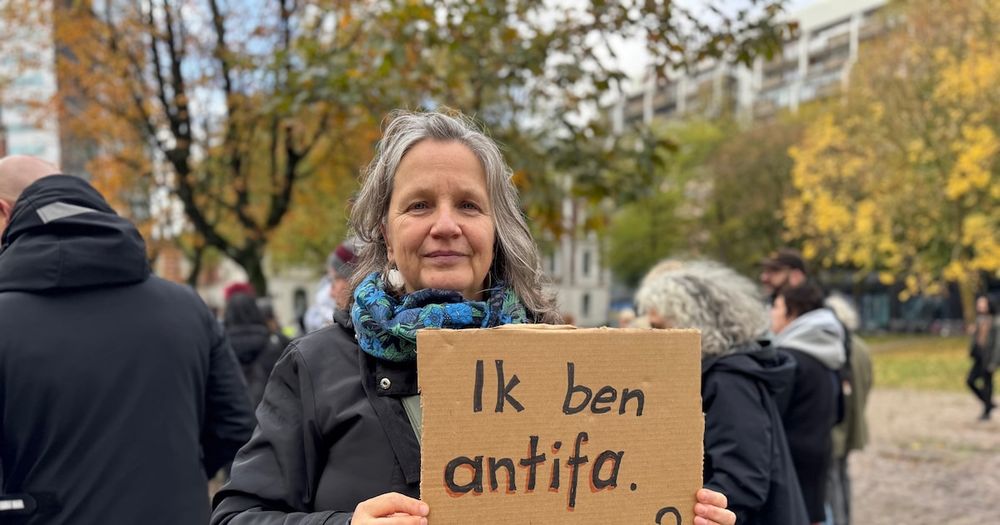 Ik ben
antifa.